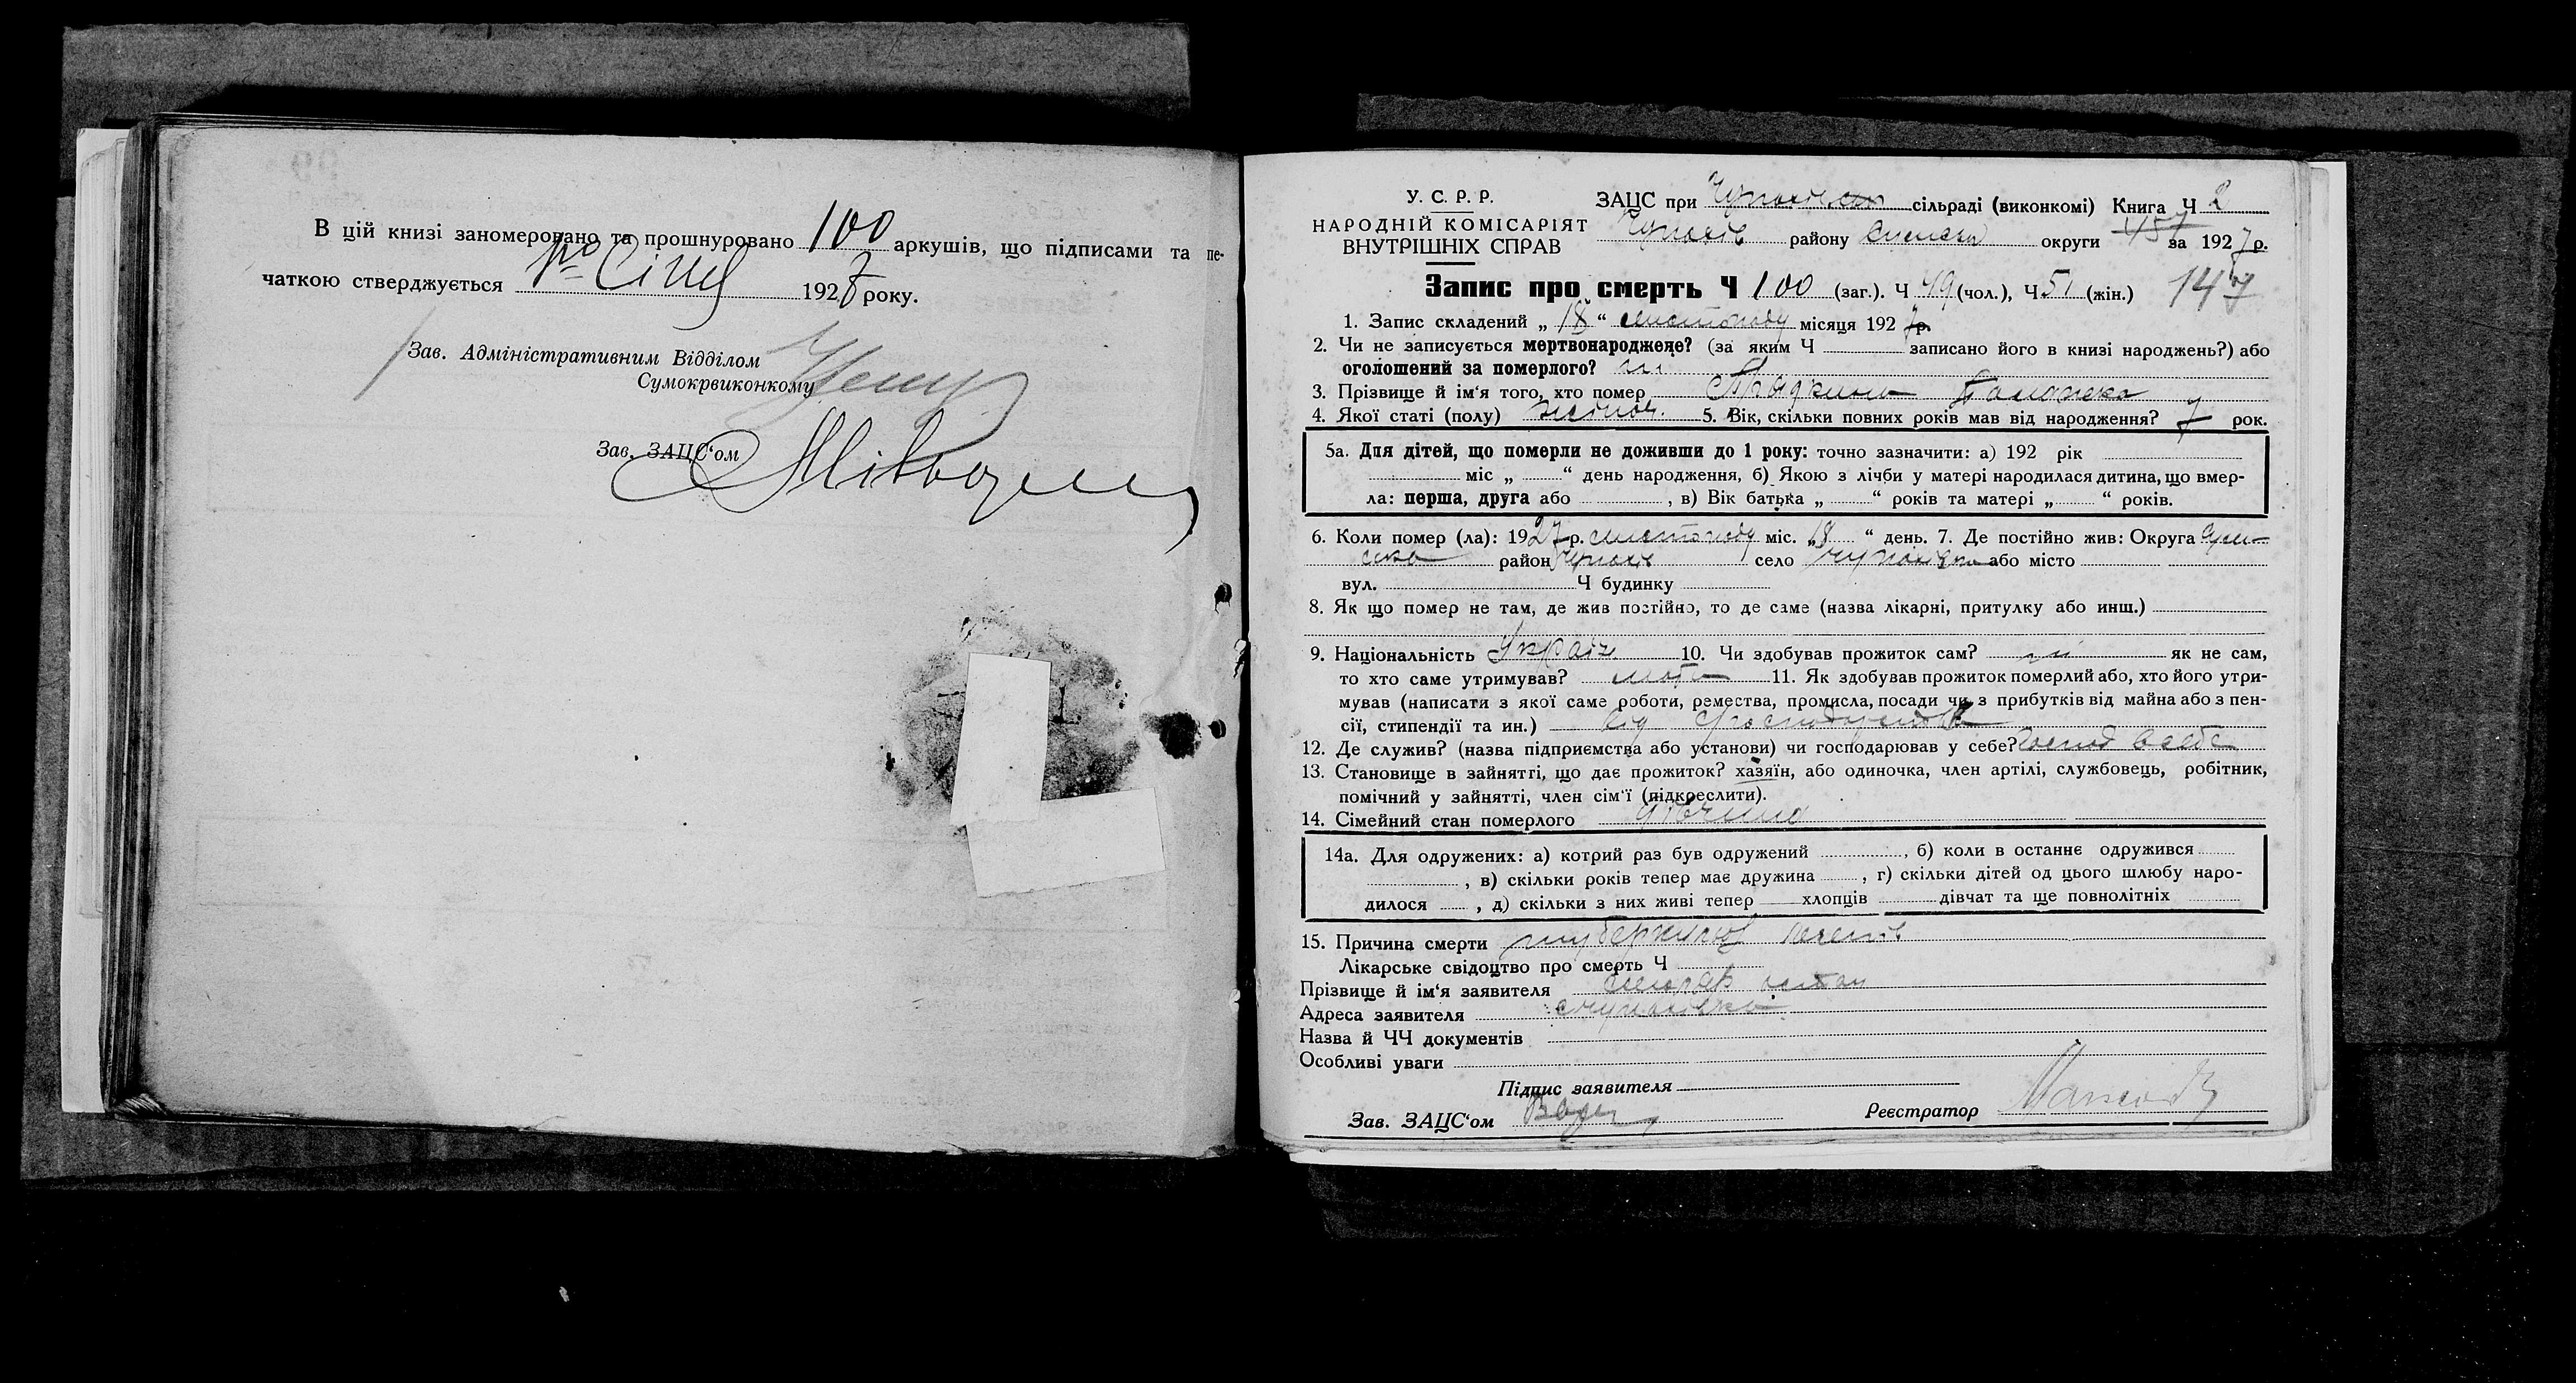 В цій книзі заномеровано та прошнуровано 100 аркушів, що підписами та пе-
чаткою стверджується 192 року.
Зав. Адміністративним Відділом
Сумокрвиконкому
Зав. ЗАЦС‘ом
У. С. Р. Р.
НАРОДНІЙ КОМІСАРІЯТ
ВНУТРІШНІХ СПРАВ
ЗАЦС при сільраді (виконкомі) Книга Ч 2
району округи 157 за 1927 р.
Запис про смерть Ч 100 (заг.). Ч 49 (чол.), Ч 51 (жін.) 147
1. Запис складений „ 18 “ листопаду місяця 1927 р.
2. Чи не записується мертвонароджене? (за яким Ч записано його в книзі народжень?) або
оголошений за померлого? ні
3. Прізвище й ім‘я того, хто помер
4. Якої статі (полу) жіноч. 5. Вік, скільки повних років мав від народження? 7 рок.
5а. Для дітей, що померли не доживши до 1 року: точно зазначити: а) 192 рік
міс „ “ день народження, б) Якою з лічби у матері народилася дитина, що вмер-
ла: перша, друга або , в) Вік батька „ “ років та матері „ “ років.
6. Коли помер (ла): 1927 р. листопаду міс. „18 “ день. 7. Де постійно жив: Округа Сум-
ська район село або місто
вул. Ч будинку
8. Як що помер не там, де жив постійно, то де саме (назва лікарні, притулку або инш.)
9. Національність Україн. 10. Чи здобував прожиток сам? ні як не сам,
то хто саме утримував? 11. Як здобував прожиток померлий або, хто його утри-
мував (написати з якої саме роботи, ремества, промисла, посади чи з прибутків від майна або з пен-
сії, стипендії та ин.) від господарства
12. Де служив? (назва підприємства або установи) чи господарював у себе? господ в себе
13. Становище в зайнятті, що дає прожиток? хазяїн, або одиночка, член артілі, службовець, робітник,
помічний у зайнятті, член сім‘ї (підкреслити).
14. Сімейний стан померлого дівчина
14а. Для одружених: а) котрий раз був одружений , б) коли в останнє одружився
, в) скільки років тепер має дружина , г) скільки дітей од цього шлюбу наро-
дилося , д) скільки з них живі тепер хлопців дівчат та ще повнолітніх
15. Причина смерти туберкульоз легенів
Лікарське свідоцтво про смерть Ч
Прізвище й ім‘я заявителя
Адреса заявителя
Назва й ЧЧ документів
Особливі уваги
Підпис заявителя
Зав. ЗАЦС‘ом Реєстратор